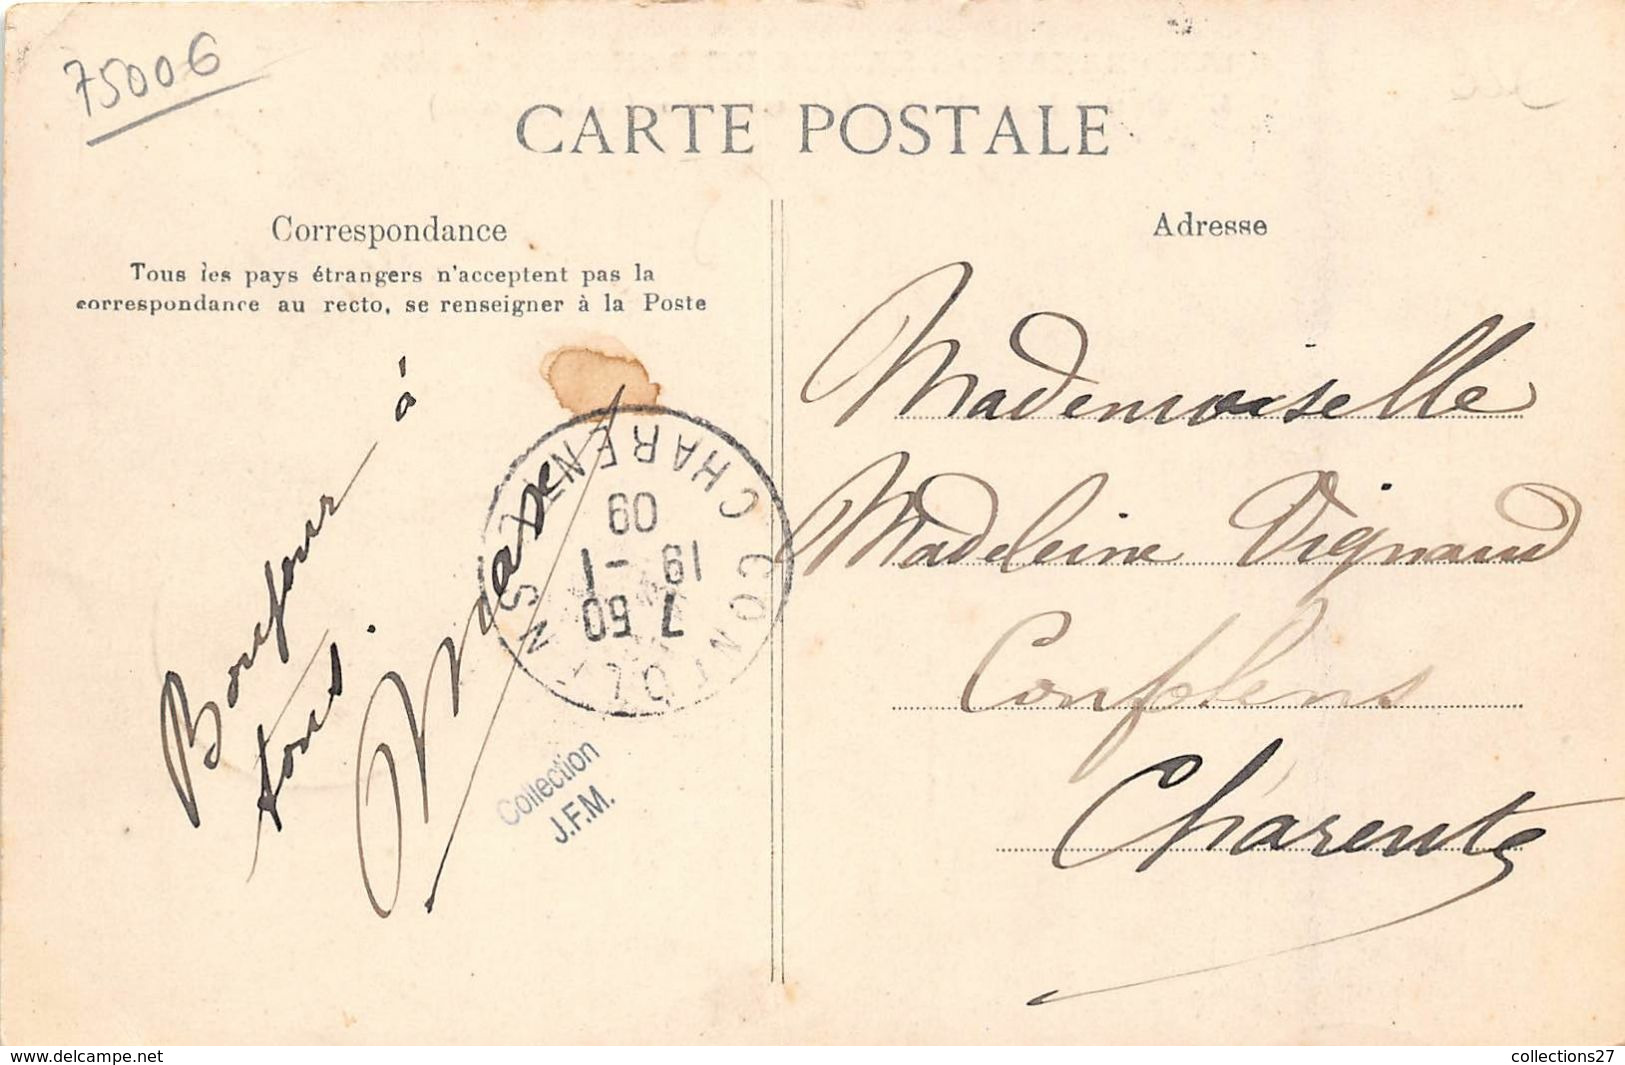 75006
CARTE POSTALE
Correspondance
Tous les pays étrangers n'acceptent pas la
correspondance au recto, se renseigner à la Poste
Bonjour à
tous.
Max
CONFOLENS CHARENTE
7 50
19 -1
09
Collection
J.F.M.
Adresse
Mademoiselle
Madeleine Vignaud
Confolens
Charente
www.delcampe.net
collections27